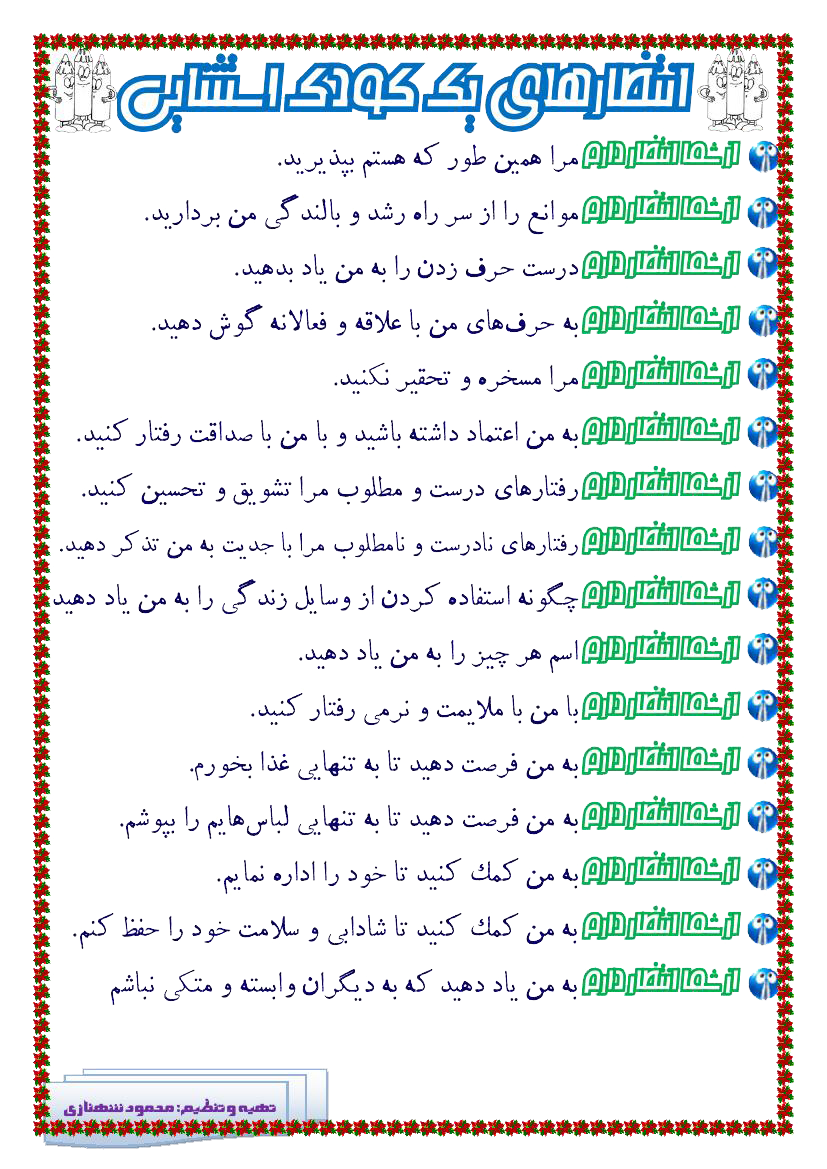 انتظارهای یک کودک استثنایی
از شما انتظار دارم مرا همین طور که هستم بپذیرید.
از شما انتظار دارم موانع را از سر راه رشد و بالندگی من بردارید.
از شما انتظار دارم درست حرف زدن را به من یاد بدهید.
از شما انتظار دارم به حرف‌های من با علاقه و فعالانه گوش دهید.
از شما انتظار دارم مرا مسخره و تحقیر نکنید.
از شما انتظار دارم به من اعتماد داشته باشید و با من با صداقت رفتار کنید.
از شما انتظار دارم رفتارهای درست و مطلوب مرا تشویق و تحسین کنید.
از شما انتظار دارم رفتارهای نادرست و نامطلوب مرا با جدیت به من تذکر دهید.
از شما انتظار دارم چگونه استفاده کردن از وسایل زندگی را به من یاد دهید
از شما انتظار دارم اسم هر چیز را به من یاد دهید.
از شما انتظار دارم با من با ملایمت و نرمی رفتار کنید.
از شما انتظار دارم به من فرصت دهید تا به تنهایی غذا بخورم.
از شما انتظار دارم به من فرصت دهید تا به تنهایی لباس‌هایم را بپوشم.
از شما انتظار دارم به من کمك کنید تا خود را اداره نمایم.
از شما انتظار دارم به من کمك کنید تا شادابی و سلامت خود را حفظ کنم.
از شما انتظار دارم به من یاد دهید که به دیگران وابسته و متکی نباشم
تهیه و تنظیم: محمود شهنازی